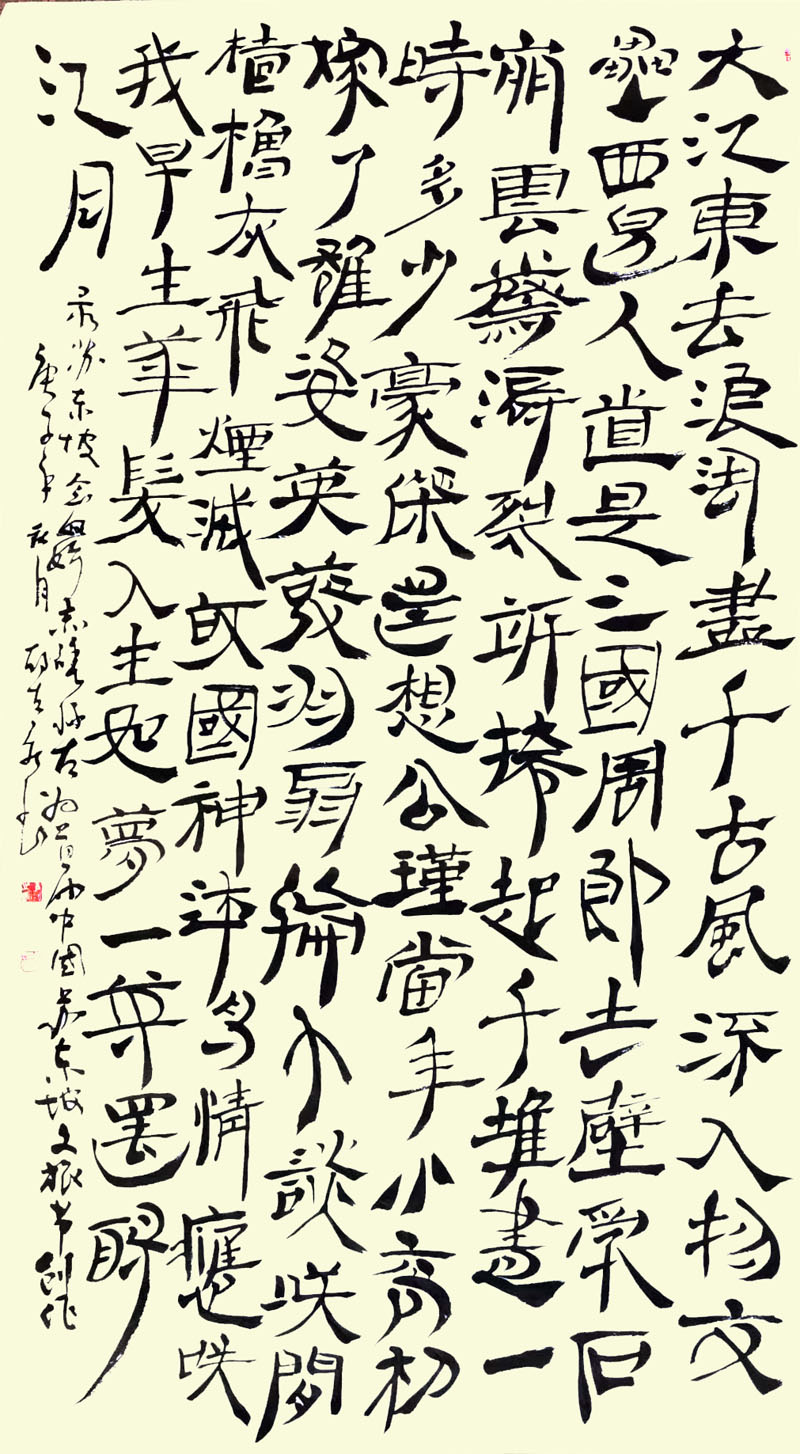 大江東去浪淘盡千古風流人物文
壘西邊人道是三國周郎赤壁亂石
崩雲驚濤裂岸捲起千堆畫一
時多少豪傑遙想公瑾當年小喬初
嫁了雄姿英發羽扇綸巾談笑間
檣櫓灰飛煙滅故國神游多情應笑
我早生華髮人生如夢一尊還酹
江月
录苏东坡念奴娇赤壁怀古为首届中国苏东坡文旅节创作
庚子年秋月